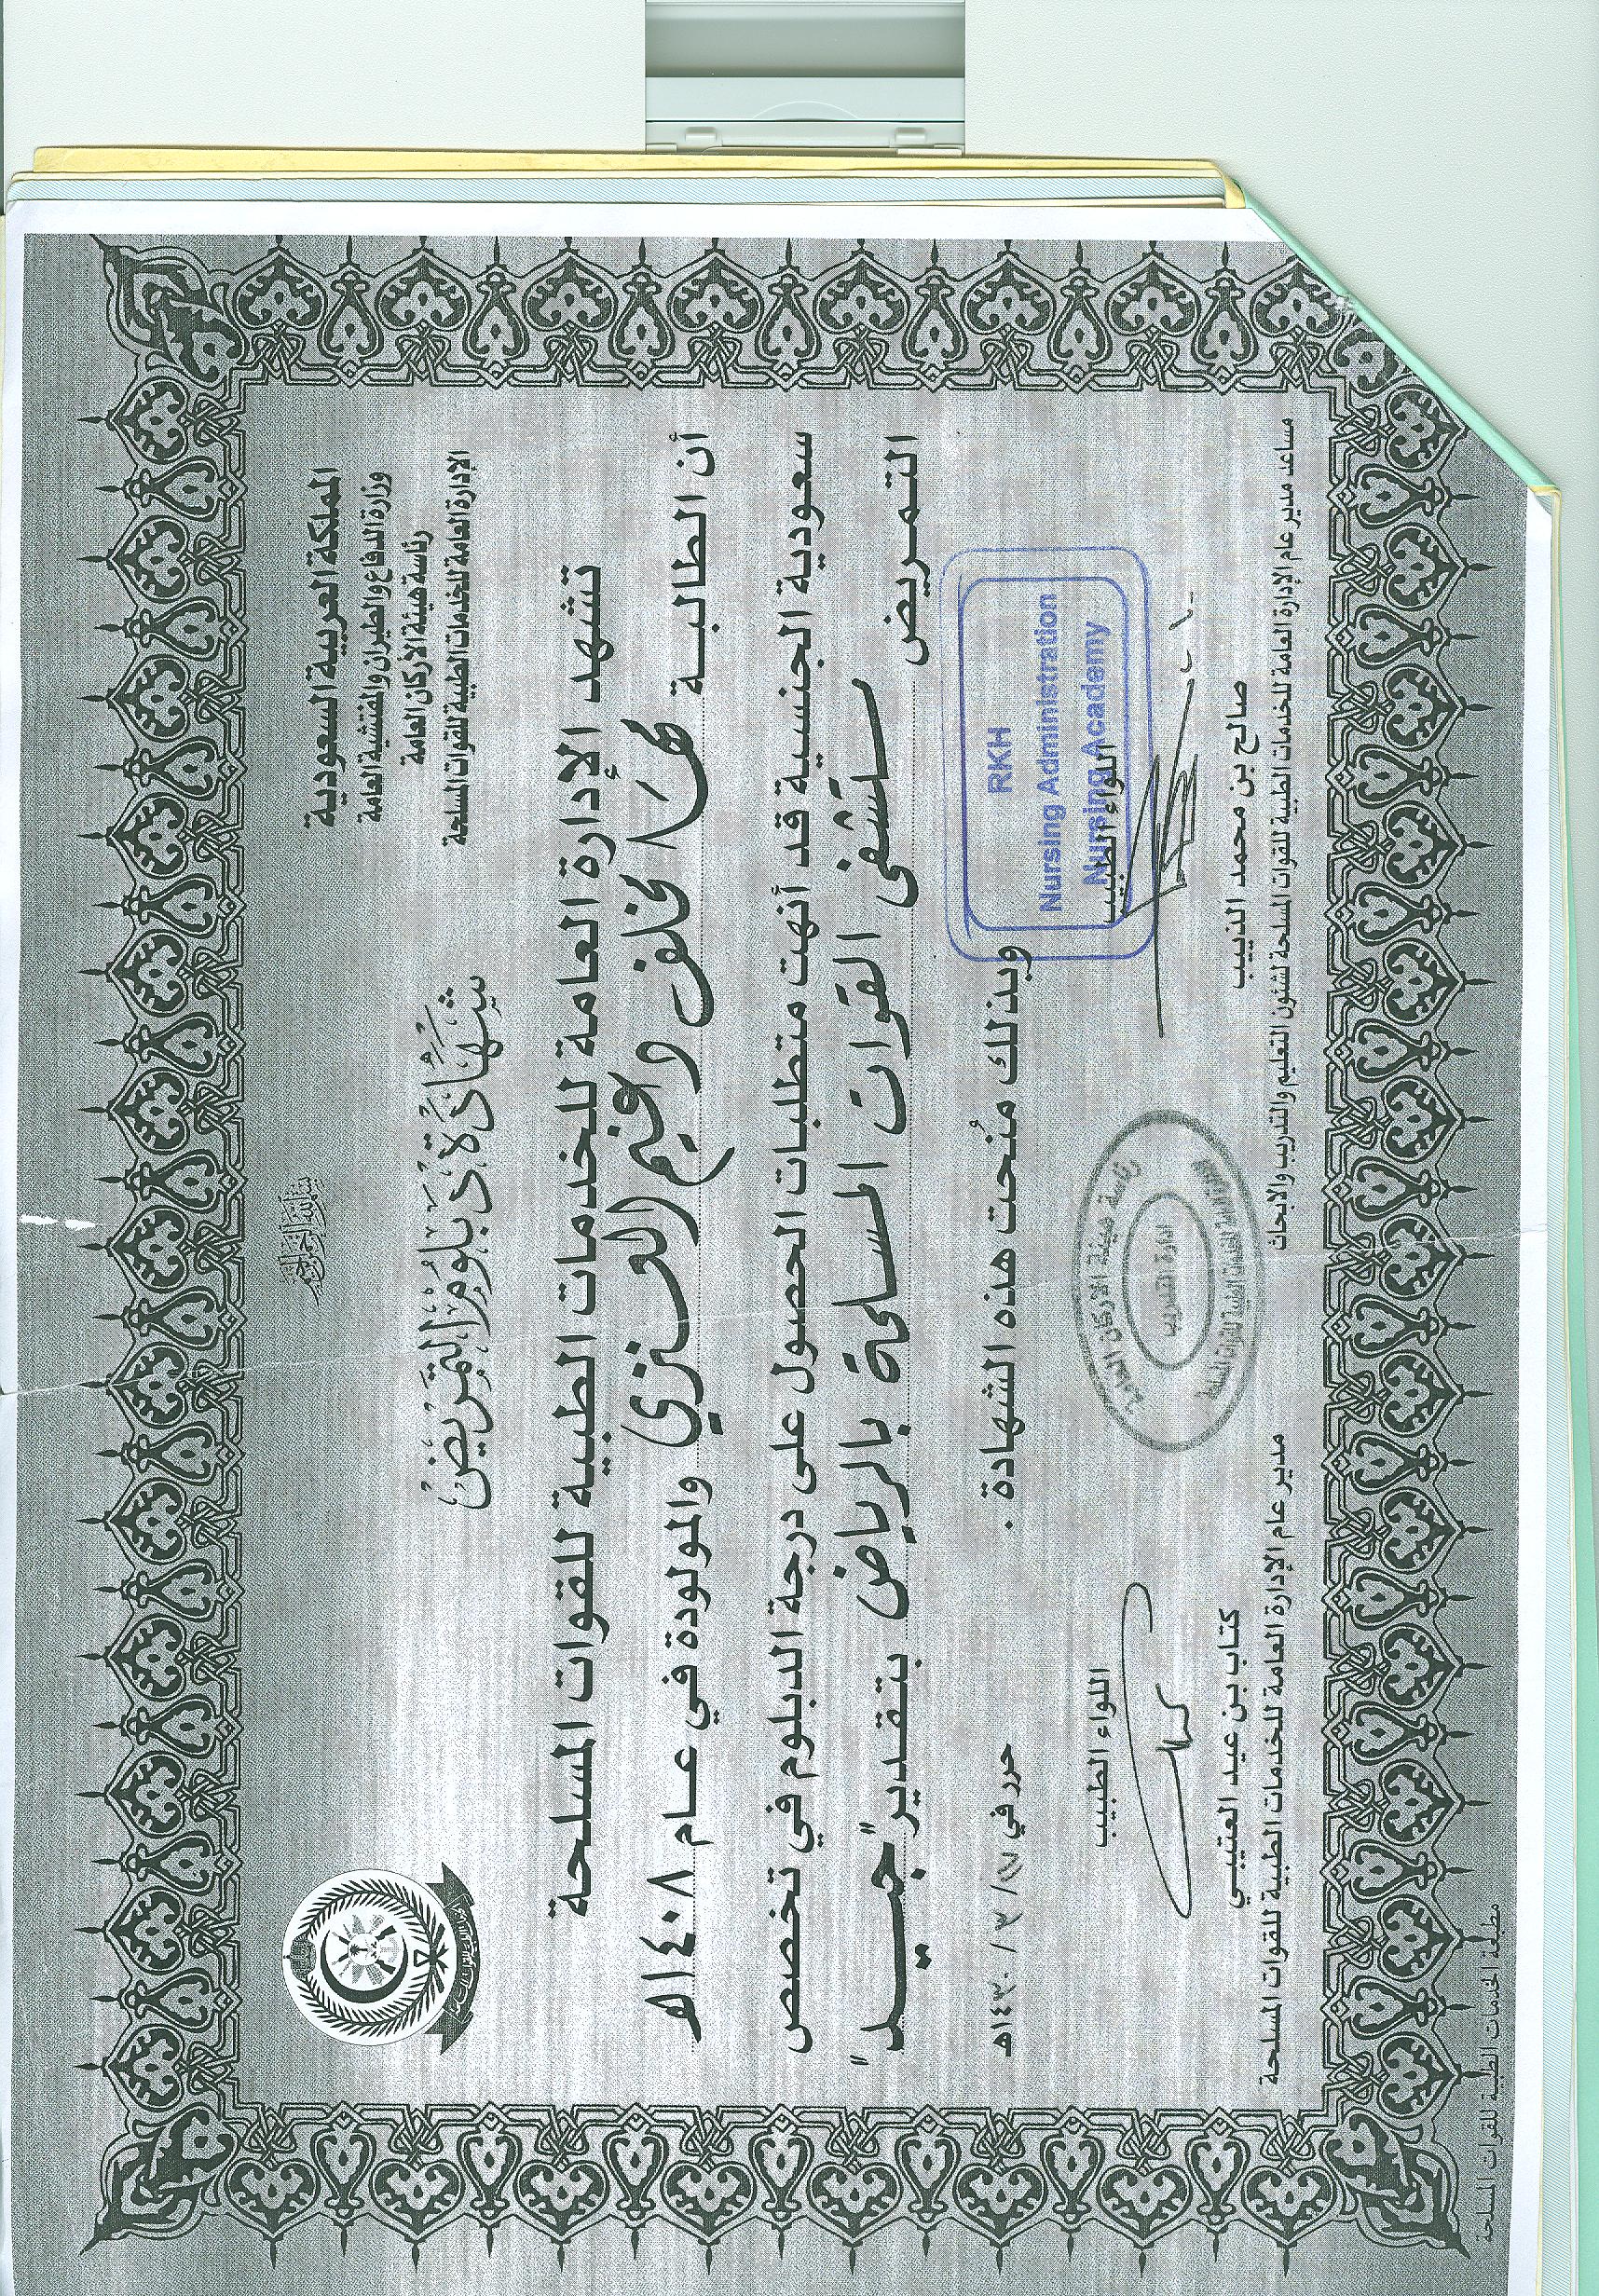 بسم الله الرحمن الرحيم
المملكة العربية السعودية
وزارة الدفاع والطيران والمفتشية العامة
رئاسة هيئة الأركان العامة
الإدارة العامة للخدمات الطبية للقوات المسلحة
شهادة دبلوم التمريض
تشهد الإدارة العامة للخدمات الطبية للقوات المسلحة
أن الطالبة مخلف العنزي والمولودة في عام ١٤٠٨هـ
سعودية الجنسية قد أنهت متطلبات الحصول على درجة الدبلوم في تخصص
التمريض القوات المسلحة بالرياض بتقدير "جيد"
وبذلك مُنحت هذه الشهادة .
حرر في ١٤٣٠هـ
RKH
Nursing Administration
Nursing Academy
اللواء الطبيب
صالح بن محمد الذبيب
مساعد مدير عام الإدارة العامة للخدمات الطبية للقوات المسلحة لشئون التعليم والتدريب والابحاث
رئاسة هيئة الاركان العامة
ادارة التدريب
اللواء الطبيب
كتاب بن عيد العتيبي
مدير عام الإدارة العامة للخدمات الطبية للقوات المسلحة
مطبعة الخدمات الطبية للقوات المسلحة